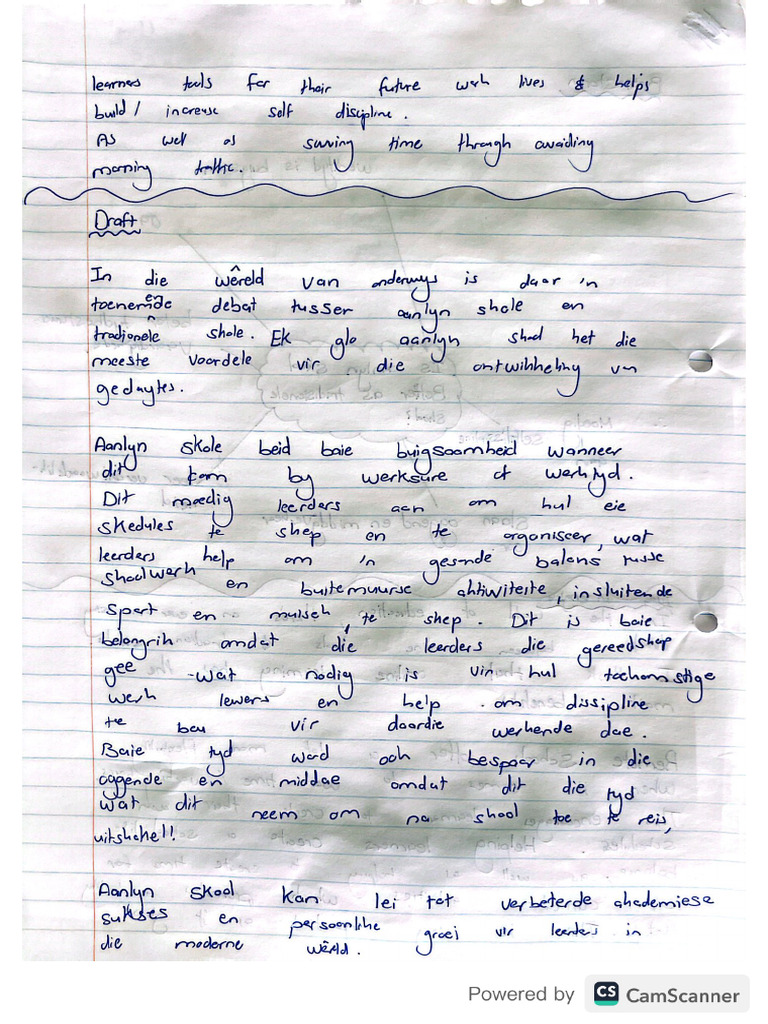 learners tools for their future work lives & helps
build / increase self discipline.
As well as saving time through avoiding
morning traffic.
Draft
In die wêreld van onderwys is daar 'n
toenemende debat tusser aanlyn skole en
tradionele skole. Ek glo aanlyn skool het die
meeste voordele vir die ontwikkeling van
gedaytes.
Aanlyn skole beid baie buigsaamheid wanneer
dit kom by werksure of werktyd.
Dit moedig leerders aan om hul eie
skedules te skep en te organiseer, wat
leerders help om 'n gesonde balans tusse
skoolwerk en buitemuurse aktiwiteite, insluitende
sport en musiek, te skep. Dit is baie
belangrik omdat die leerders die gereedskap
gee wat nodig is vir hul toekomstige
werk lewers en help om dissipline
te bou vir daardie werkende dae.
Baie tyd word ook bespaar in die
oggende en middae omdat dit die tyd
wat dit neem om na skool toe te reis,
uitskakel!
Aanlyn skool kan lei tot verbeterde akademiese
sukses en persoonlike groei vir leerders in
die moderne wêrld.
Powered by CS CamScanner